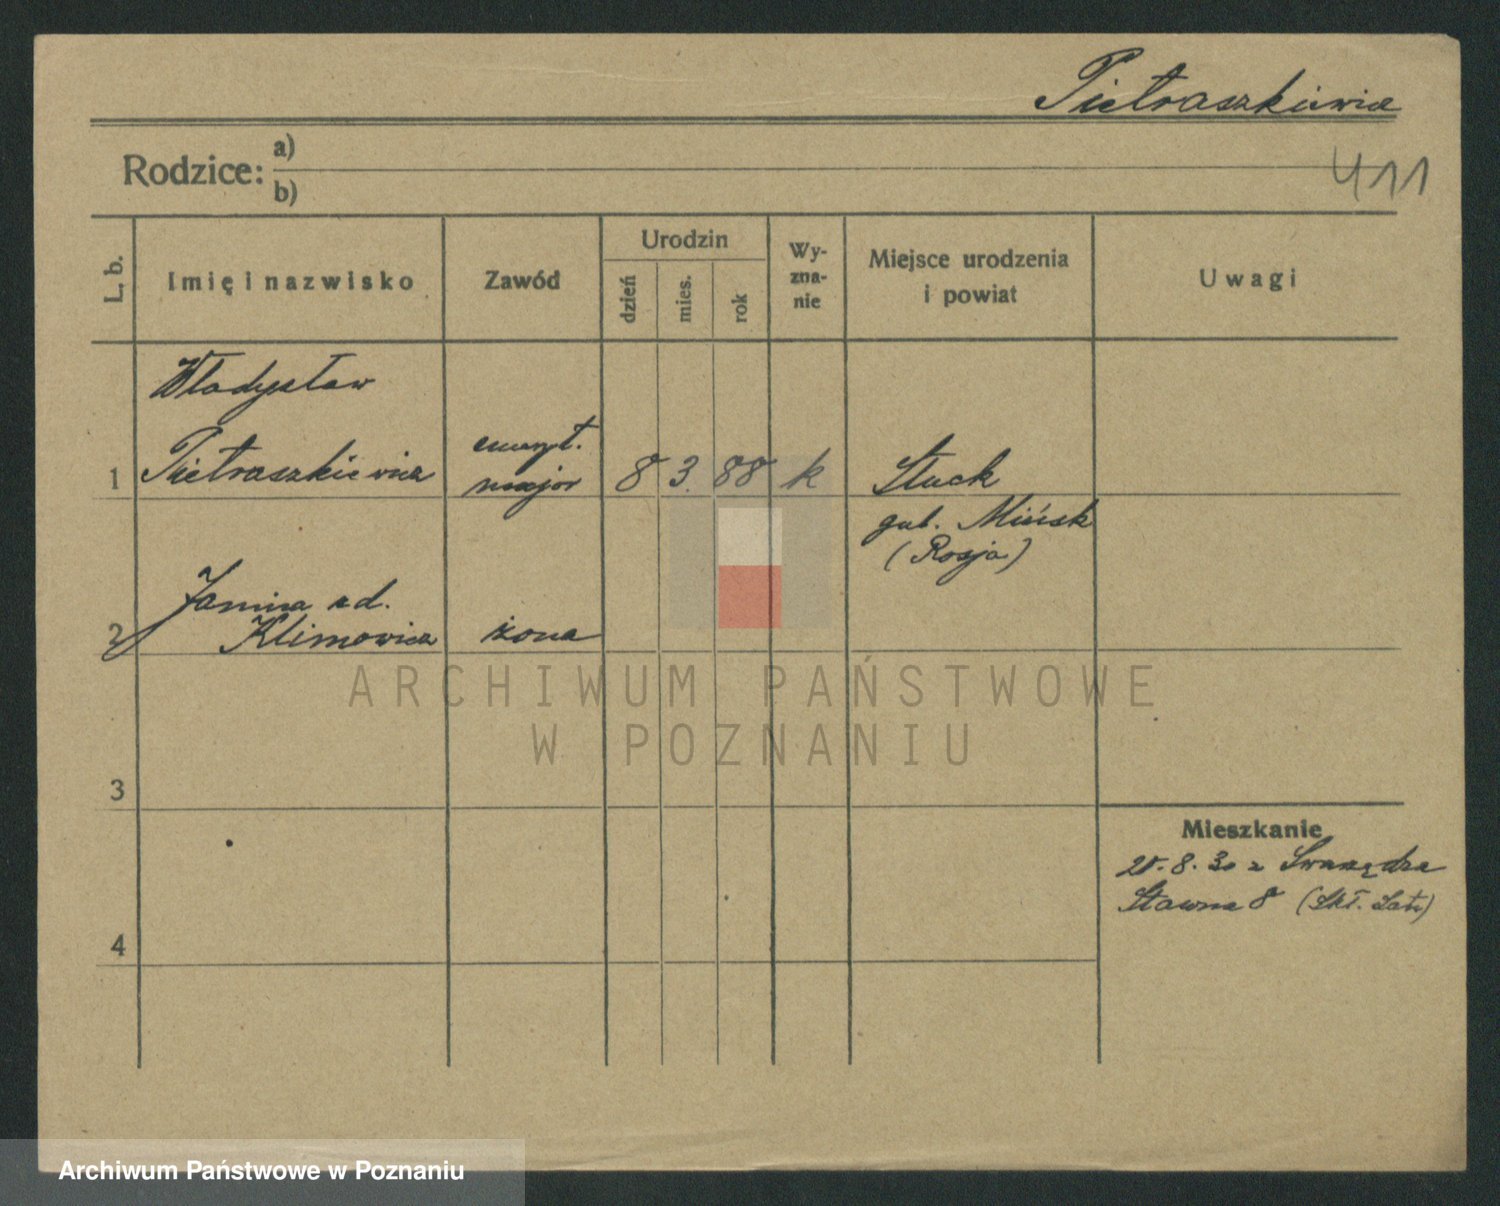 Pietraszkiewicz
Rodzice: a)
b)
411
L. b.
Imię i nazwisko
Zawód
Urodzin
dzień
mies.
rok
Wy-
zna-
nie
Miejsce urodzenia
i powiat
Uwagi
Władysław
1 Pietraszkiewicz
emeryt.
major
8 3. 88 k
Słuck
gub. Mińsk
(Rosja)
Janina z d.
2 Klimowicz
żona
3
4
Mieszkanie
8. 30 z Swarzędza
Stawna 8
ARCHIWUM PAŃSTWOWE
W POZNANIU
Archiwum Państwowe w Poznaniu